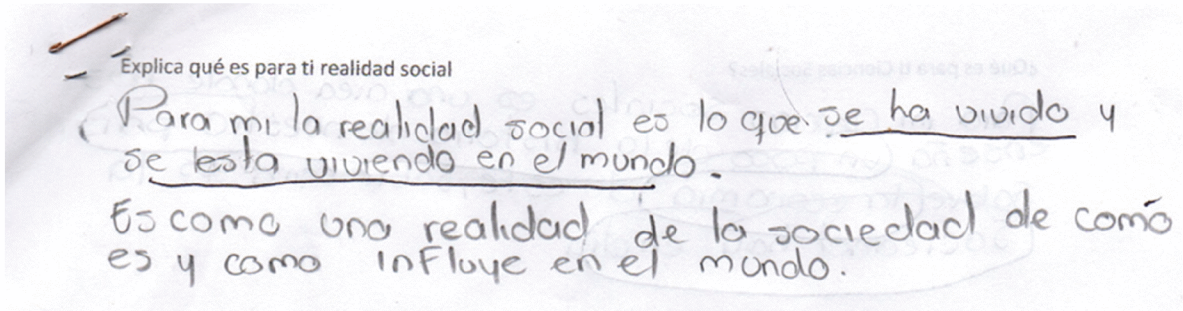 Explica qué es para ti realidad social
Para mi la realidad social es lo que se ha vivido y
se esta viviendo en el mundo.
Es como una realidad de la sociedad de como
es y como influye en el mundo.